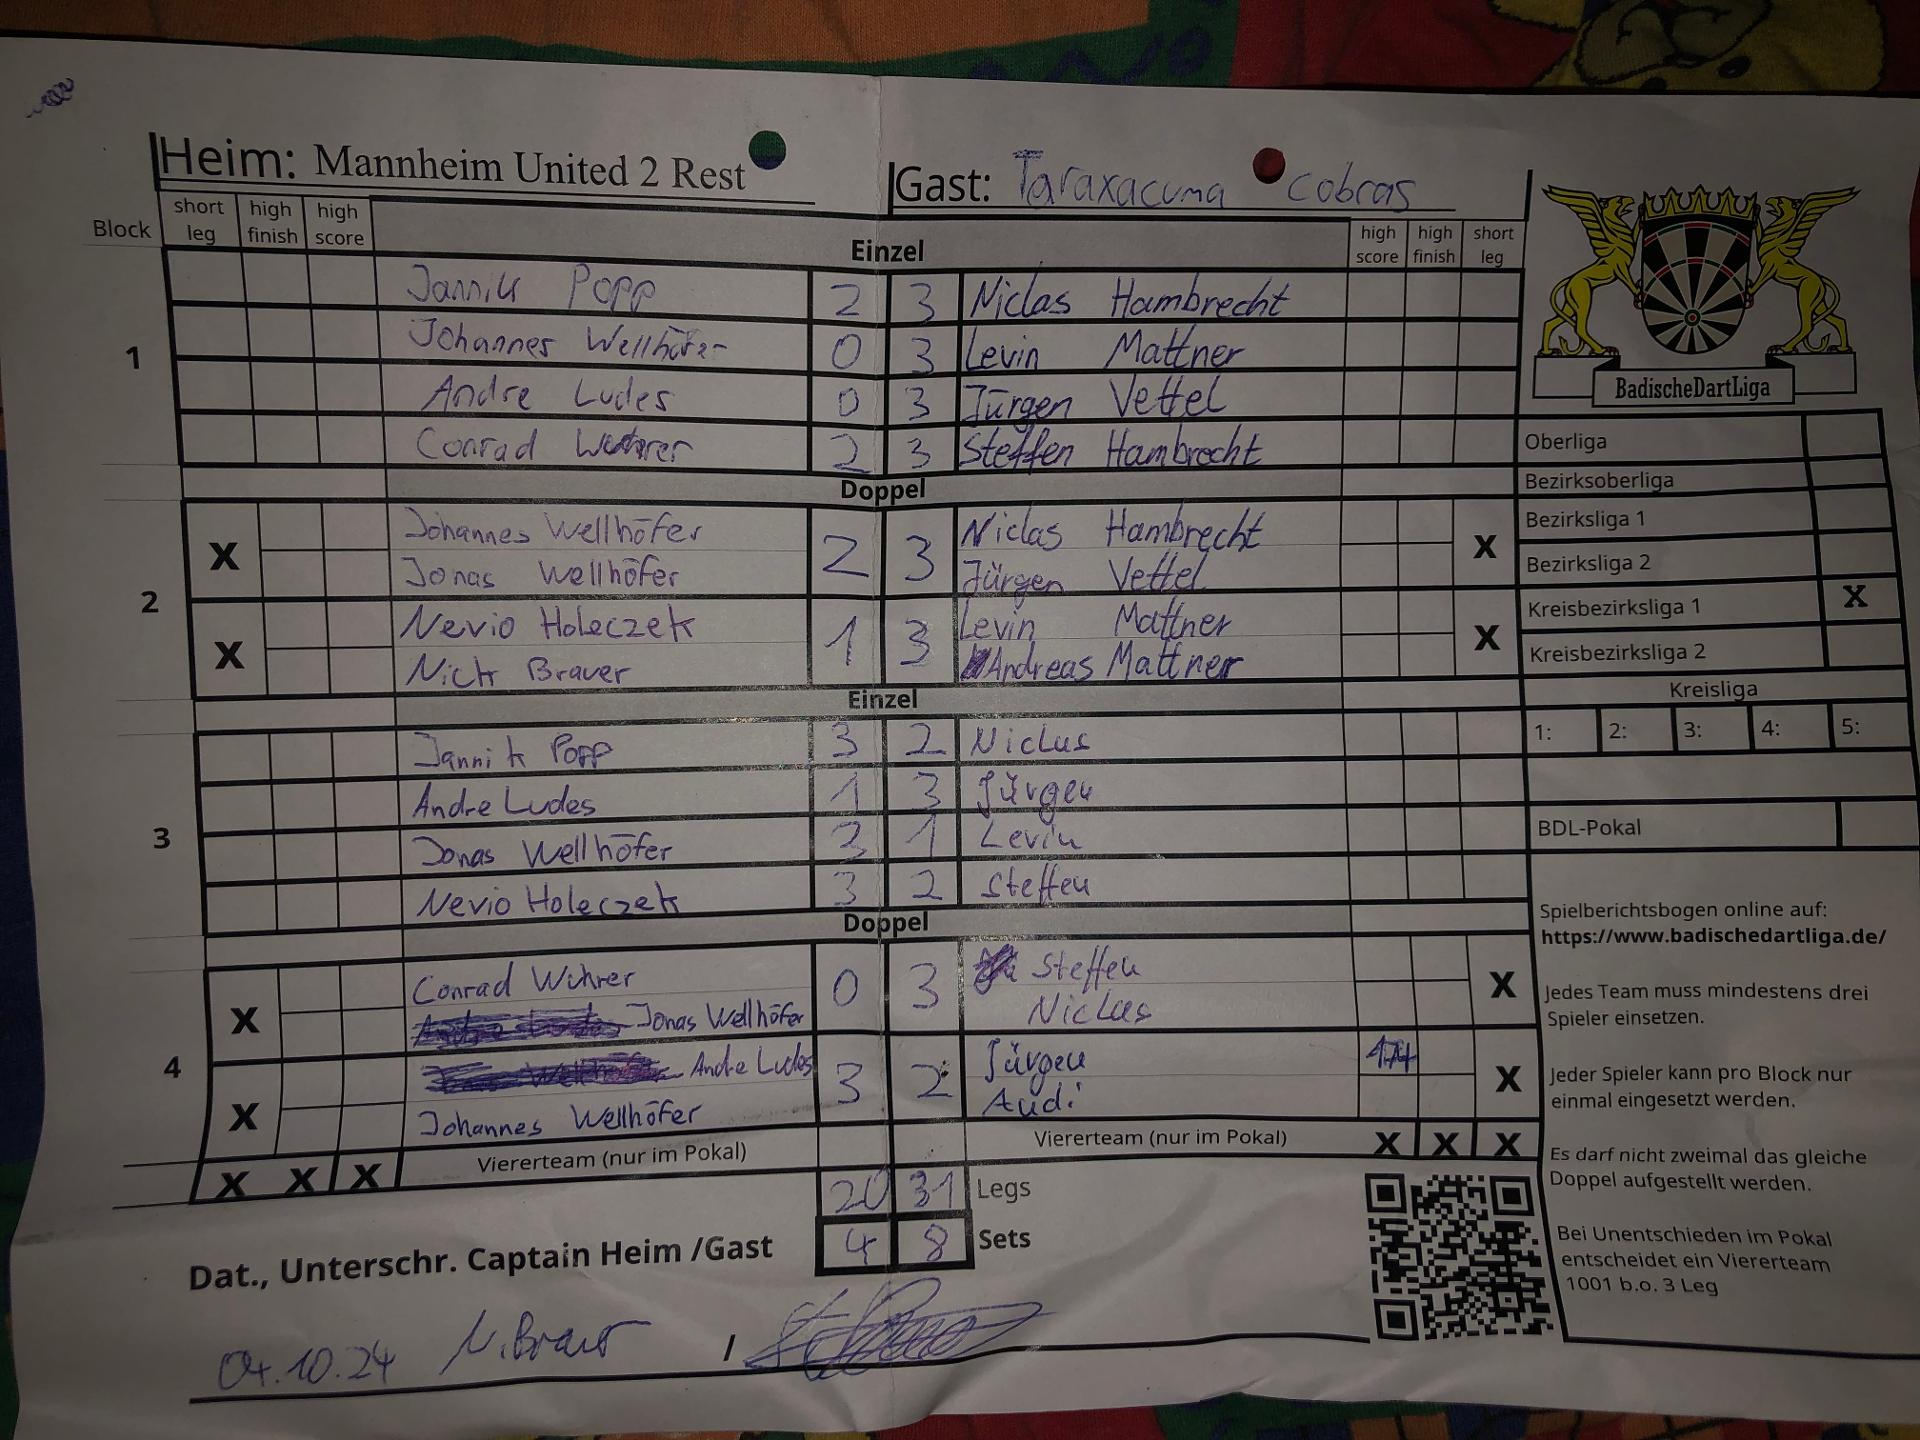 Heim: Mannheim United 2 Rest
Gast: Taraxacuma cobras
Block short leg high finish high score Einzel high score high finish short leg
1
Jannik Popp 2 3 Niclas Hambrecht
Johannes Wellhöfer 0 3 Levin Mattner
Andre Ludes 0 3 Jürgen Vettel
Conrad 2 3 Steffen Hambrecht
Doppel
2
X Johannes Wellhöfer 2 3 Niclas Hambrecht X
Jonas Wellhöfer Jürgen Vettel
X Nevio Holeczek 1 3 Levin Mattner X
Nick Brauer Andreas Mattner
Einzel
3
Jannik Popp 3 2 Niclas
Andre Ludes 1 3 Jürgen
Jonas Wellhöfer 3 1 Levin
Nevio Holeczek 3 2 Steffen
Doppel
4
X Conrad Wührer 0 3 Steffen X
Jonas Wellhöfer Niclas
X Andre Ludes 3 2 Jürgen X
Johannes Wellhöfer Andi
X X X Viererteam (nur im Pokal) Viererteam (nur im Pokal) X X X
20 31 Legs
4 8 Sets
Dat., Unterschr. Captain Heim /Gast
04.10.24 N. /
BadischeDartLiga
Oberliga
Bezirksoberliga
Bezirksliga 1
Bezirksliga 2
Kreisbezirksliga 1 X
Kreisbezirksliga 2
Kreisliga
1: 2: 3: 4: 5:
BDL-Pokal
Spielberichtsbogen online auf:
https://www.badischedartliga.de/
Jedes Team muss mindestens drei
Spieler einsetzen.
Jeder Spieler kann pro Block nur
einmal eingesetzt werden.
Es darf nicht zweimal das gleiche
Doppel aufgestellt werden.
Bei Unentschieden im Pokal
entscheidet ein Viererteam
1001 b.o. 3 Leg